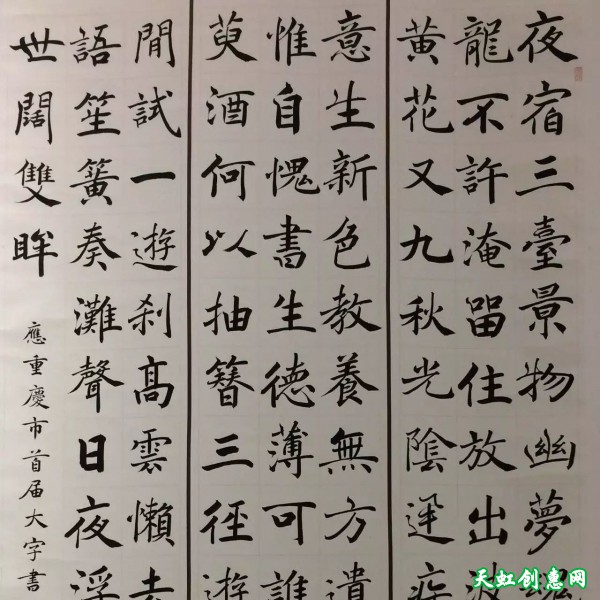 夜宿三臺景物幽夢
龍不許淹留住放出
黃花又九秋光陰迅
意生新色教養無方遺
惟自愧書生德薄可誰
萸酒何以抽簪三徑遊
閒試一遊剎高雲懶去
語笙簧奏灘聲日夜浮
世闊雙眸
應重慶市首届大字書
天虹创惠网